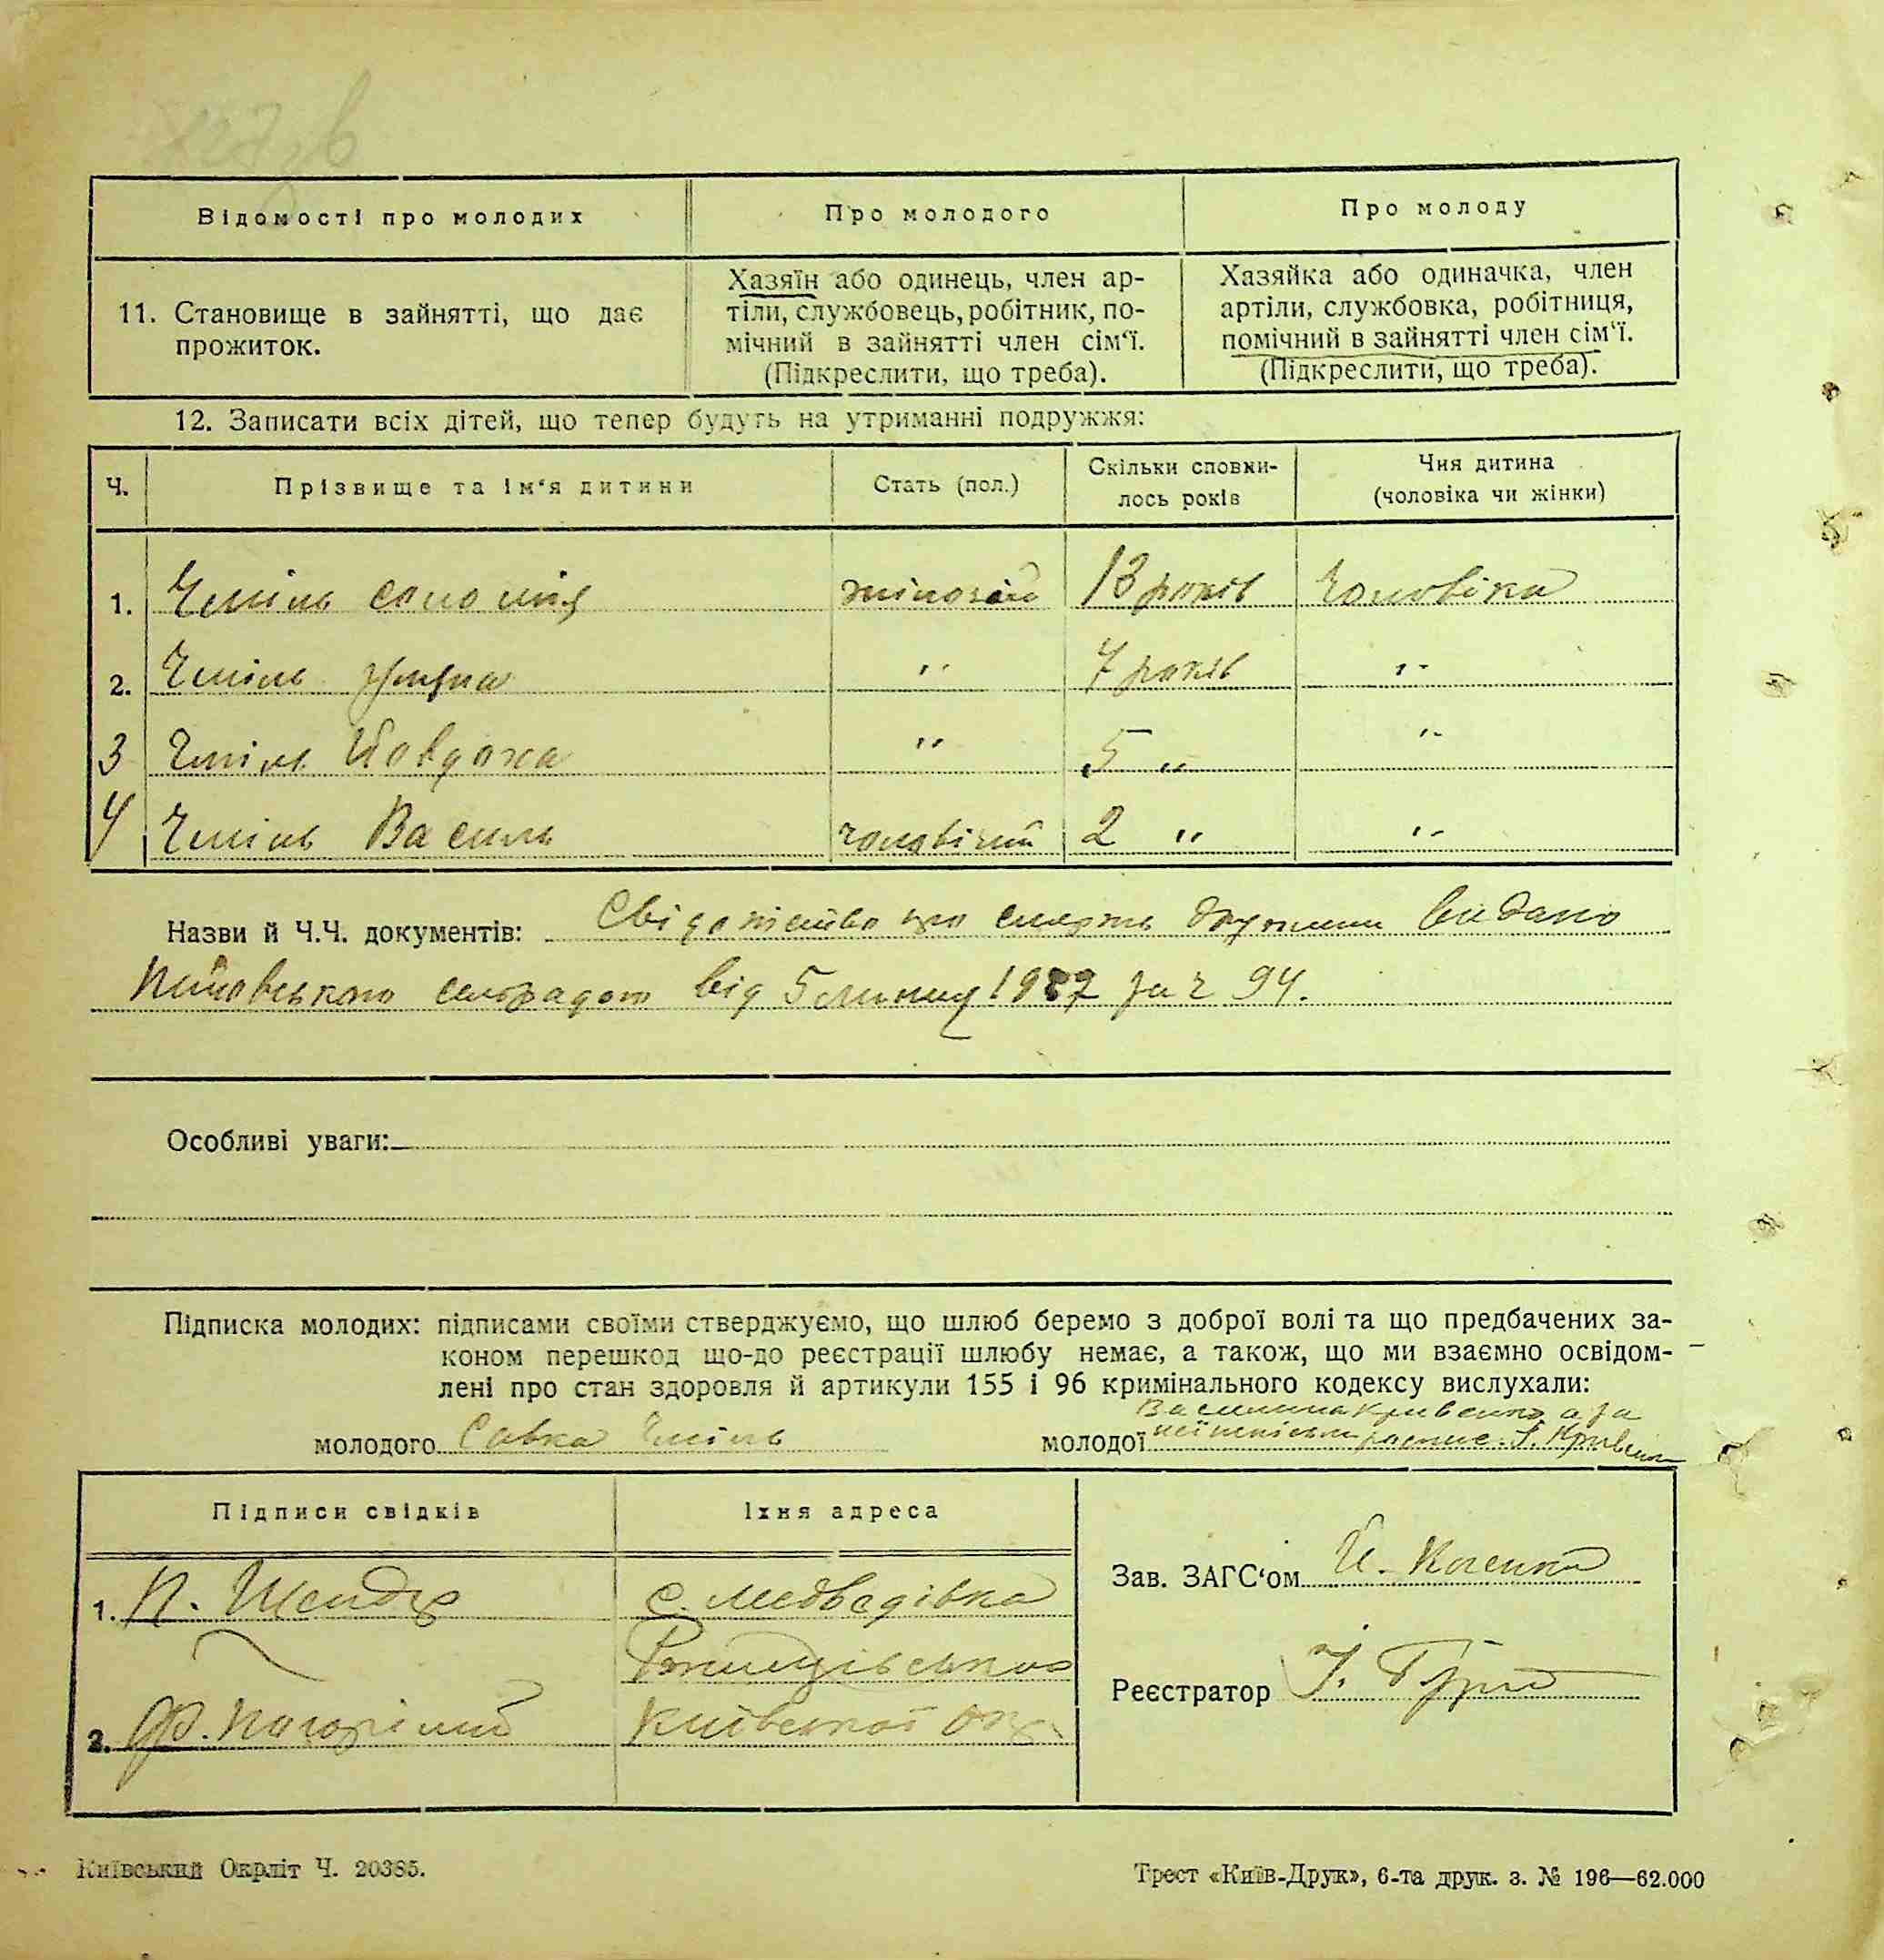 Відомості про молодих
Про молодого
Про молоду
11. Становище в зайнятті, що дає
прожиток.
Хазяїн або одинець, член ар-
тіли, службовець, робітник, по-
мічний в зайнятті член сім‘ї.
(Підкреслити, що треба).
Хазяйка або одиначка, член
артіли, службовка, робітниця,
помічний в зайнятті член сім‘ї.
(Підкреслити, що треба).
12. Записати всіх дітей, що тепер будуть на утриманні подружжя:
Ч.
Прізвище та ім‘я дитини
Стать (пол.)
Скільки сповни-
лось років
Чия дитина
(чоловіка чи жінки)
1. Чміль Соломія жіночій 13 років чоловіка
2. Чміль " 7 років "
3 Чміль Йовдоха " 5 " "
4 Чміль Василь чоловічий 2 " "
Назви й Ч.Ч. документів: Свідоцтво про смерть дружини видано
сельрадою від 5 липня 1927 за ч 94.
Особливі уваги:
Підписка молодих: підписами своїми стверджуємо, що шлюб беремо з доброї волі та що предбачених за-
коном перешкод що-до реєстрації шлюбу немає, а також, що ми взаємно освідом-
лені про стан здоровля й артикули 155 і 96 кримінального кодексу вислухали:
Василина Кривенко а за
молодого Савка Чміль
молодої роспис. Кривенко
Підписи свідків
Їхня адреса
1. П. Шендр
с. Медведівка
2. Ф. Погорілий
Київської Окр.
Зав. ЗАГС‘ом
Реєстратор
Київський Окрліт Ч. 20385.
Трест «Київ-Друк», 6-та друк. з. № 196—62.000